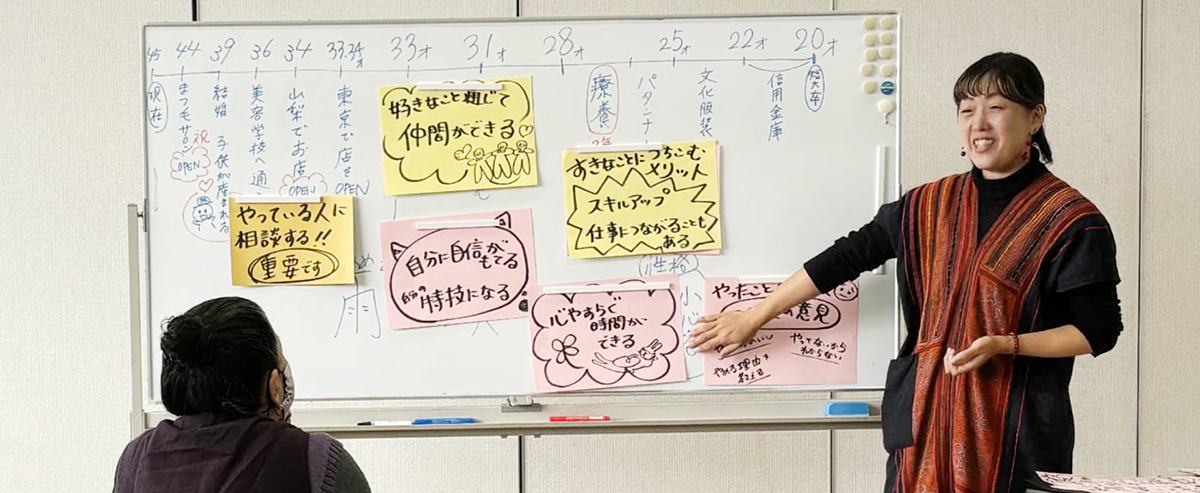 45 44 39 36 34 33.34才 33才 31才 28才 25才 22才 20才
現在
まつモサロン
祝
OPEN
結婚 子供が産まれる
美容学校へ通
山梨でお店
OPEN
東京で店を
OPEN
療養
パタンナ
文化服装
信用金庫
短大卒
好きなこと通じて
仲間ができる
すきなことにつちこむ
メリット
スキルアップ
仕事につながることも
ある
やっている人に
相談する!!
重要です
自分に自信が
もてる
自分の特技になる
性格
小心
雨
心やすらぐ
時間が
できる
やったこと
意見
やってないから
わからない
やめる理由を